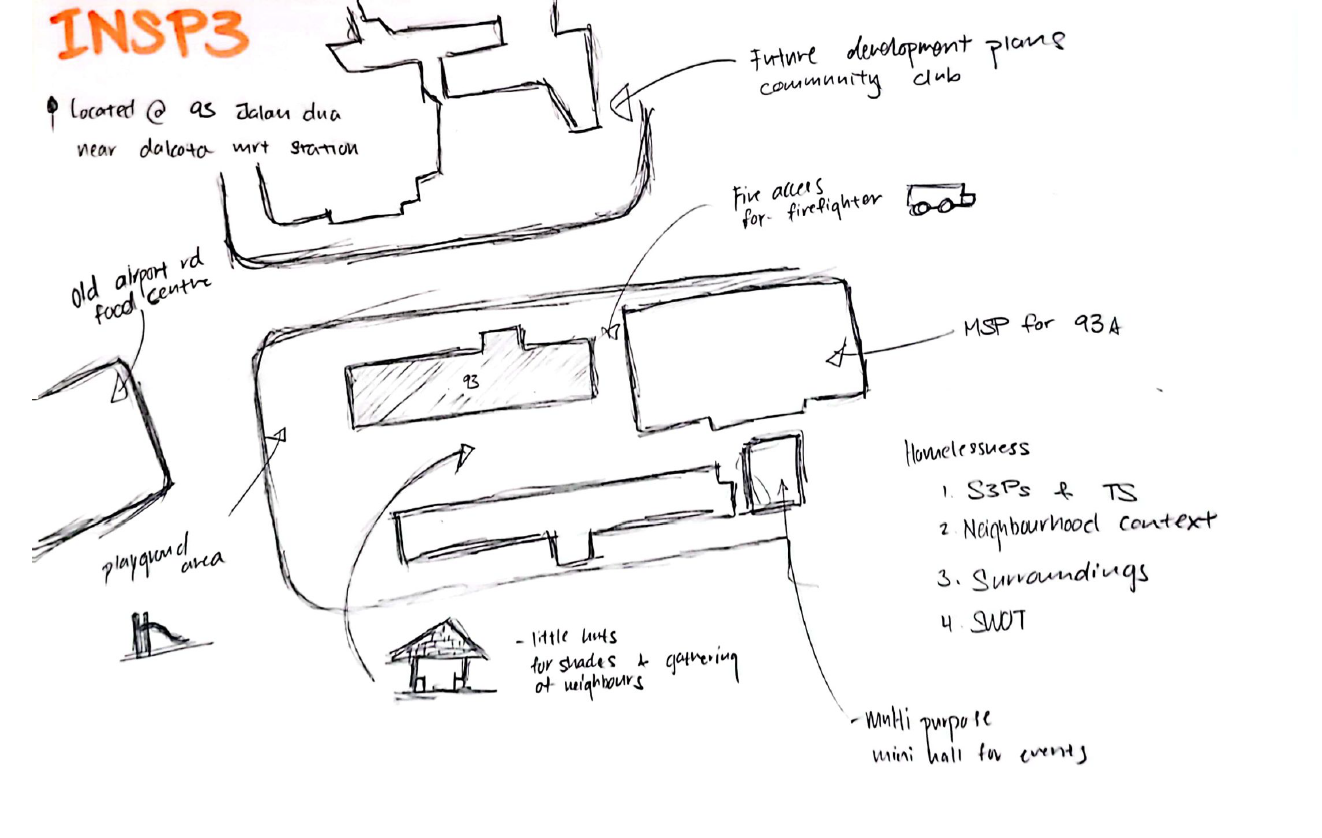 INSP3
Located @ 93 Jalan dua
near dakota mrt station
Future development plans
community club
Fire access
for firefighter
Old airport rd
food centre
MSP for 93A
93
Homelessness
1. S3Ps & TS
2. Neighbourhood context
3. Surroundings
4. SWOT
playground
area
- little huts
for shades & gathering
of neighbours
- multi purpose
mini hall for events